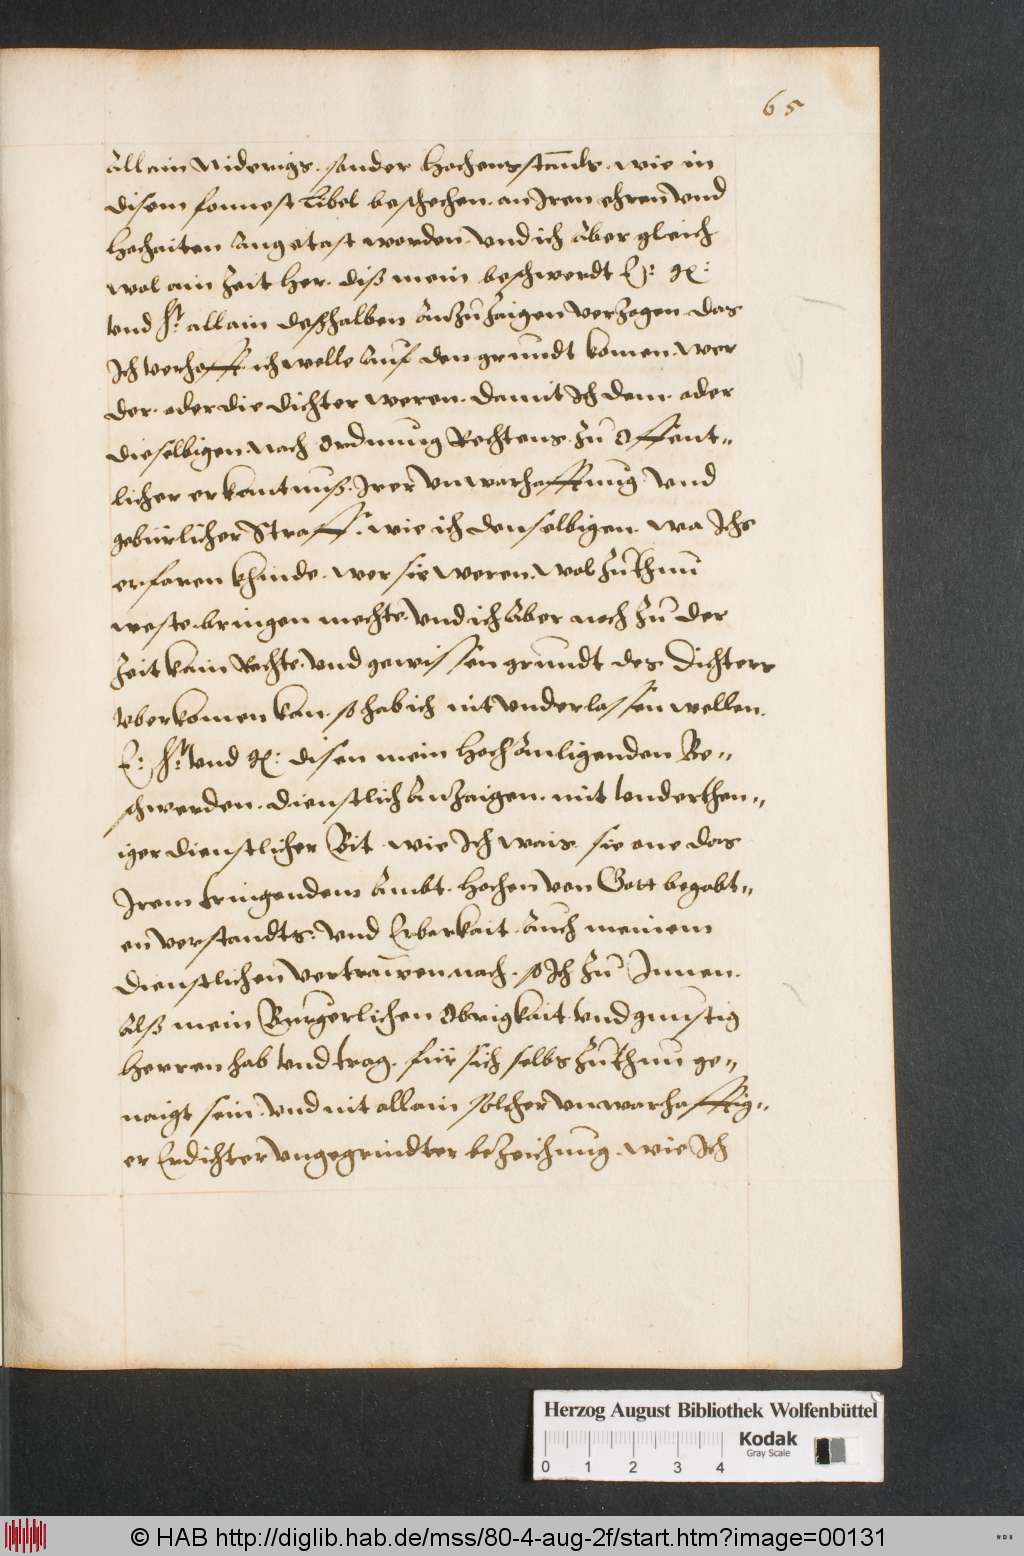 65
Allain Niderigs. sonder hochensstands. wie in
disem famnest Libel beschechen. an Iren ehren und
hochaiten Angetast worden. Und ich Aber gleich
wol ain Zeit her. diß mein beschwerdt E: W:
Und Ht: allain deßhalben AnzuZaigen verzogen das
Ich verhofft. ich welle Auf den grundt komen. wer
der. oder die dichter weren. damit Ich dem. oder
dieselbigen. nach Ordnung Rechtens. Zu Offent-
licher erkantnuß. Irer Unwarhafftung. Und
gebürlicher Straff. wie ich denselbigen. wa Ichs
erfaren khinde. wer sie weren. wol Zu Thun
weste. bringen mechte. Und ich Aber noch Zu der
Zeit kain Rechte. Und gewissen grundt des Dichters
Uberkomen kan. so hab ich nit Underlassen wellen.
E: Ht: Und W: disen mein hoch Anligenden Be-
schwerden. dienstlich AnZaigen. mit Underthen-
iger dienstlicher Bit. wie Ich wais. sie one das
Irem tringendem Ambt. hochen von Gott begabt-
en verstandts. Und Erberkait. Auch meinem
dienstlichen Vertrauwen nach. so Ich Zu Innen.
Alß mein Burgerlichen Obrigkait. Und gunstig
Herren hab Und trag. für sich selbs Zu Thun ge-
naigt sein. Und nit allain solcher Unwarhafftig-
er Erdichter Ungegrindter beZeichnung. wie Ich
Herzog August Bibliothek Wolfenbüttel
Kodak
Gray Scale
0 1 2 3 4
© HAB http://diglib.hab.de/mss/80-4-aug-2f/start.htm?image=00131